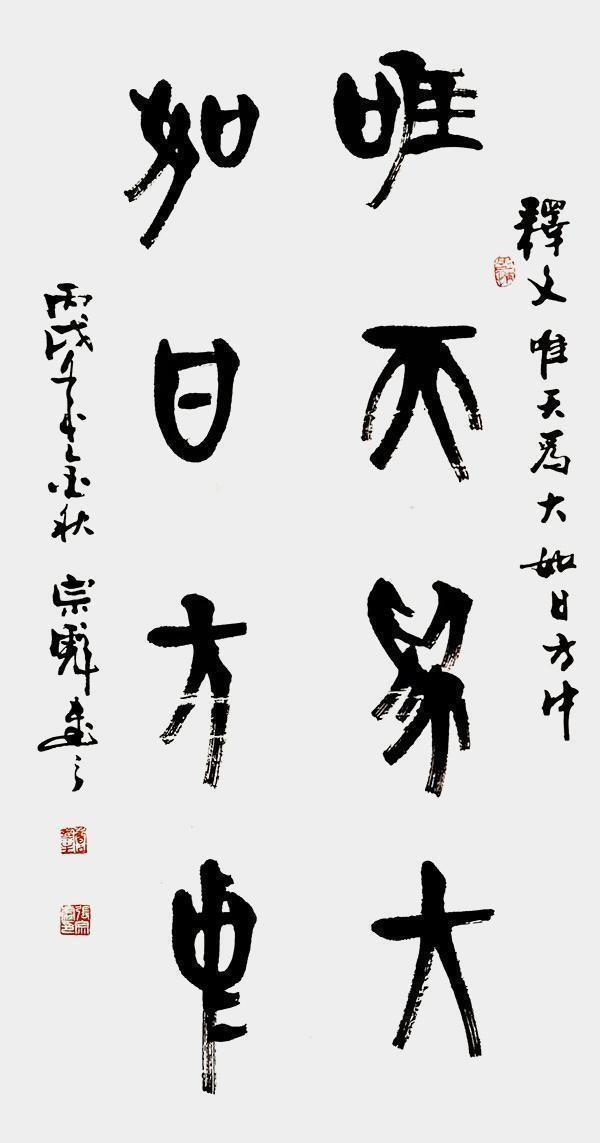 釋文 唯天為大 如日方中
唯天為大
如日方中
丙戌年金秋 宗彪書之